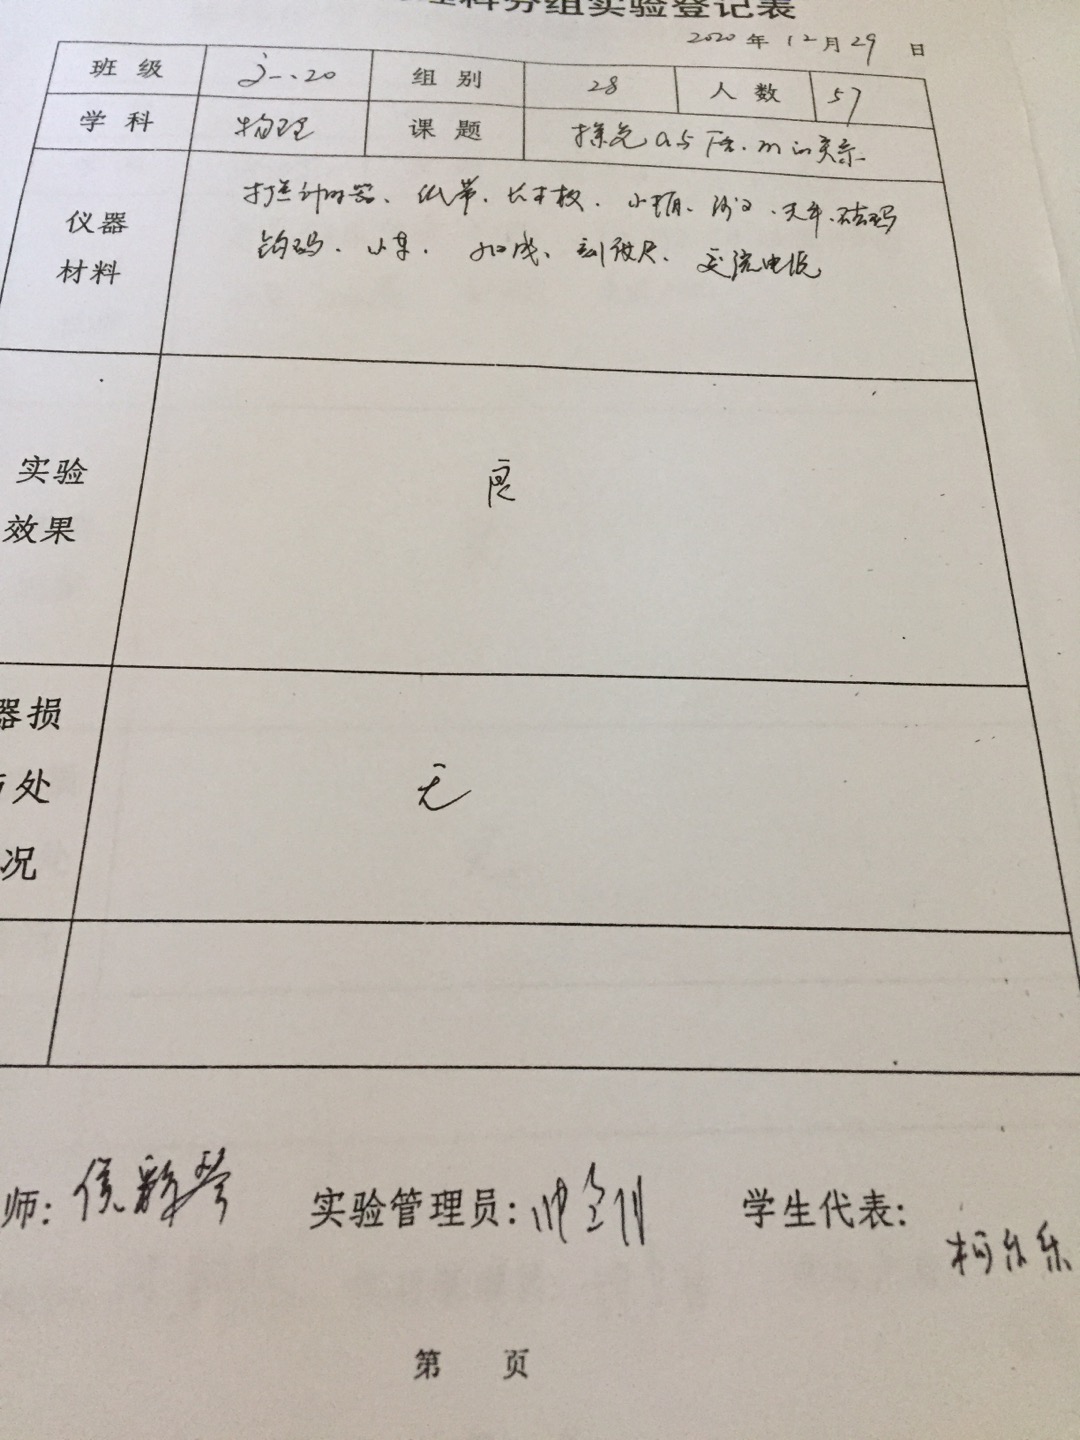 理科分组实验登记表
2020年12月29日
班级 20 组别 28 人数 57
学科 物理 课题 探究a与F合、m的关系
仪器材料
打点计时器、纸带、长木板、小桶、沙子、天平、砝码
钩码、小车、细线、刻度尺、交流电源
实验效果
良
器损
处
况
无
师: 侯 实验管理员: 学生代表: 柯乐乐
第 页